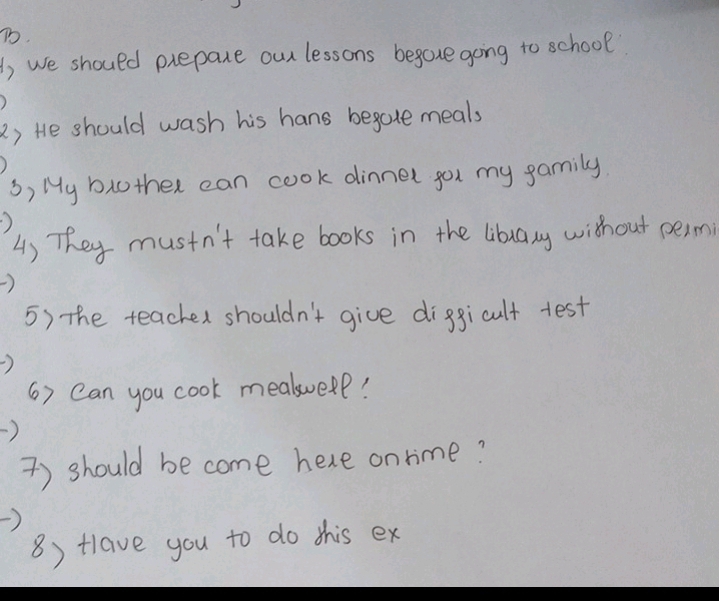 B.
1) We should prepare our lessons before going to school.
2) He should wash his hans before meals
3) My brother can cook dinner for my family
4) They mustn't take books in the library without permi
5) The teacher shouldn't give difficult test
6) Can you cook meals well!
7) should be come here on time?
8) Have you to do this ex